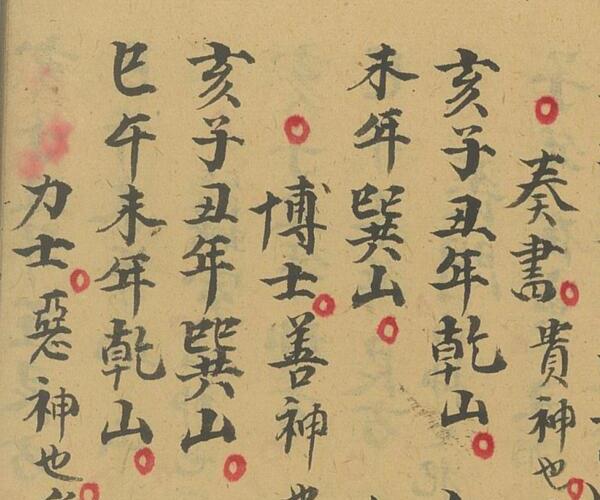 奏書貴神也
亥子丑年乾山
未年巽山
博士善神也
亥子丑年巽山
巳午未年乾山
力士惡神也